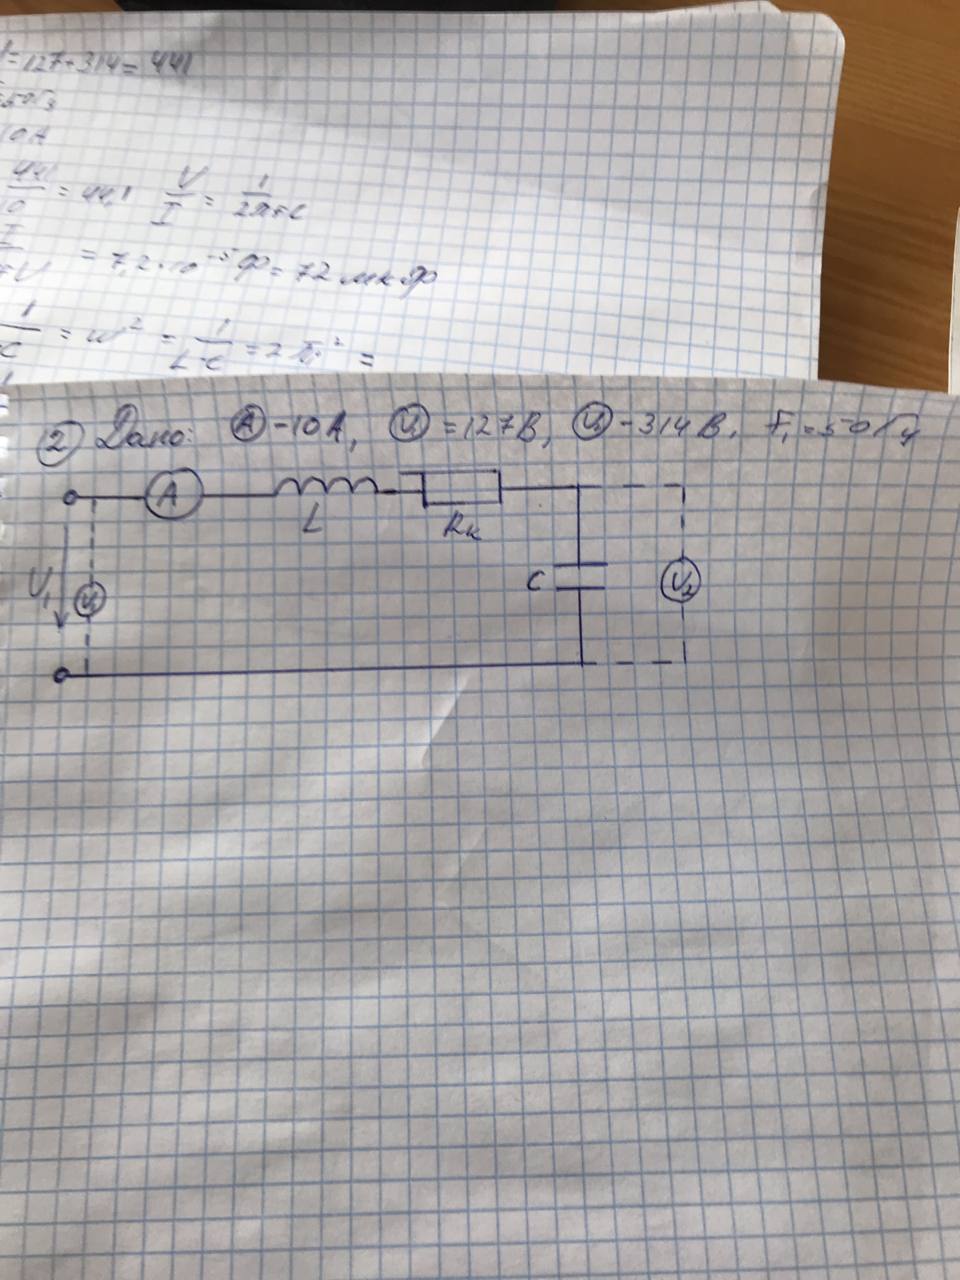 =127+314=441
=50Гц
10А
441/10 = 44,1 V/I = 1/2πFC
= 7,2·10⁻⁵Ф=72 мкФ
= ω² = 1/LC = 2π² =
② Дано: Ⓐ-10А, =127В, -314В, F₁=50Гц
A
L
Rк
U₁
C
V₂